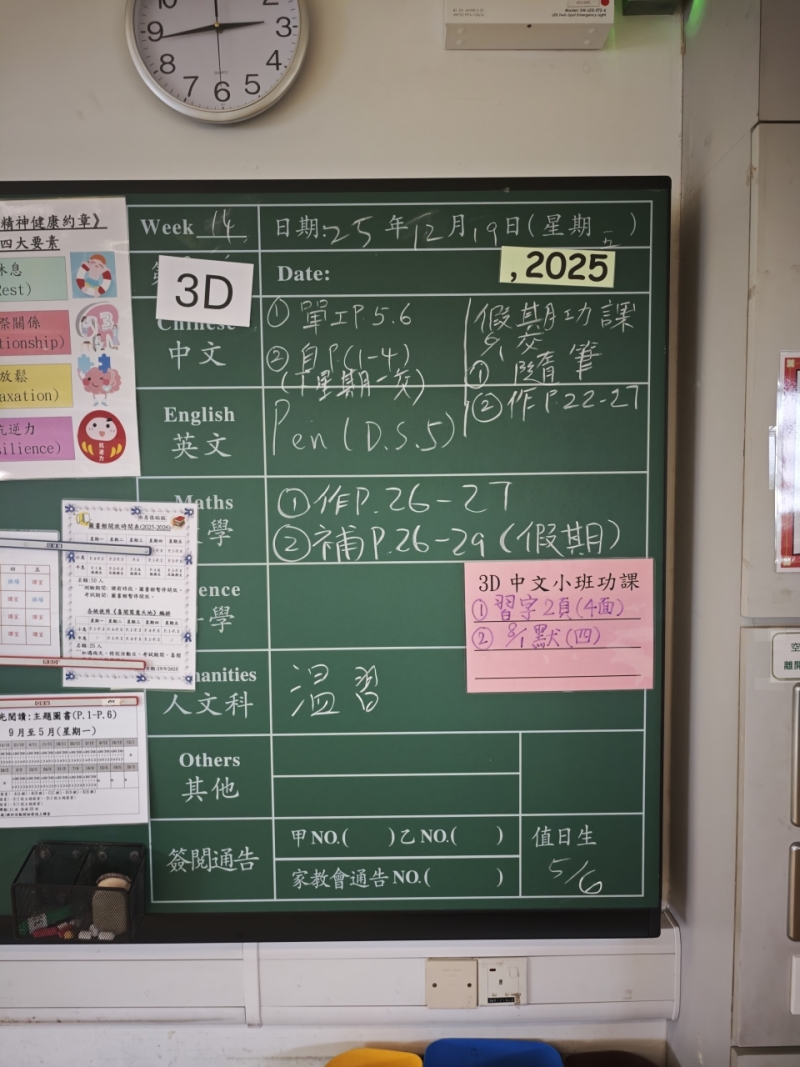 9 8 7 6 5 4 3
精神健康約章》
四大要素
休息
Rest)
際關係
tionship)
放鬆
axation)
抗逆力
silience)
Week 14
日期:25年12月19日(星期五)
3D
Date:
, 2025
Chinese
中文
① 單工P.5.6
② 自P.(1-4)
(下星期一交)
假期功課
8/1交
① 隨筆
② 作P.22-27
English
英文
Pen(D.S.5)
Maths
學
① 作P.26-27
② 補P.26-29(假期)
ence
學
3D 中文小班功課
① 習字2頁(4面)
② 8/1默(四)
manities
人文科
溫習
Others
其他
簽閱通告
甲NO.( )乙NO.( )
家教會通告NO.( )
值日生
5/6
圖書館開放時間表(2025-2026)
光閱讀:主題圖書(P.1-P.6)
9月至5月(星期一)